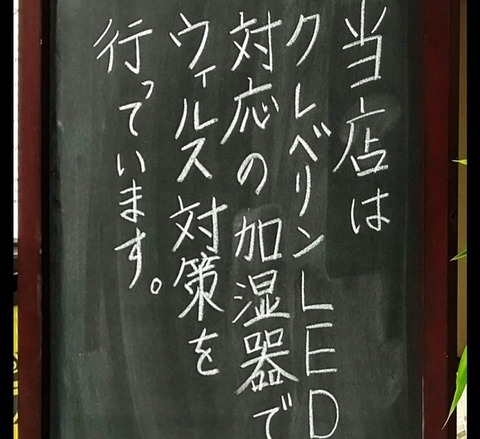 当店は
クレベリンLED
対応の加湿器で
ウィルス対策を
行っています。